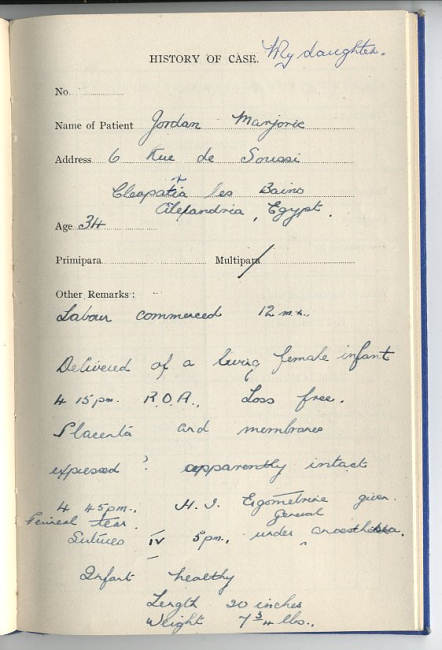 HISTORY OF CASE. My daughter.
No.
Name of Patient Jordan Marjorie
Address 6 Rue de Soussi
Cleopatra les Bains
Alexandria, Egypt.
Age 34
Primipara Multipara /
Other Remarks:
Labour commenced 12 m.n.
Delivered of a living female infant
4 15 pm. R.O.A., Loss free.
Placenta and membranes
expressed ? apparently intact
4 45pm., H. I. Ergometrine given.
Perineal tear. General
Sutures IV 5pm., under anaesthesia.
Infant healthy
Length 20 inches
Weight 7 3/4 lbs.,